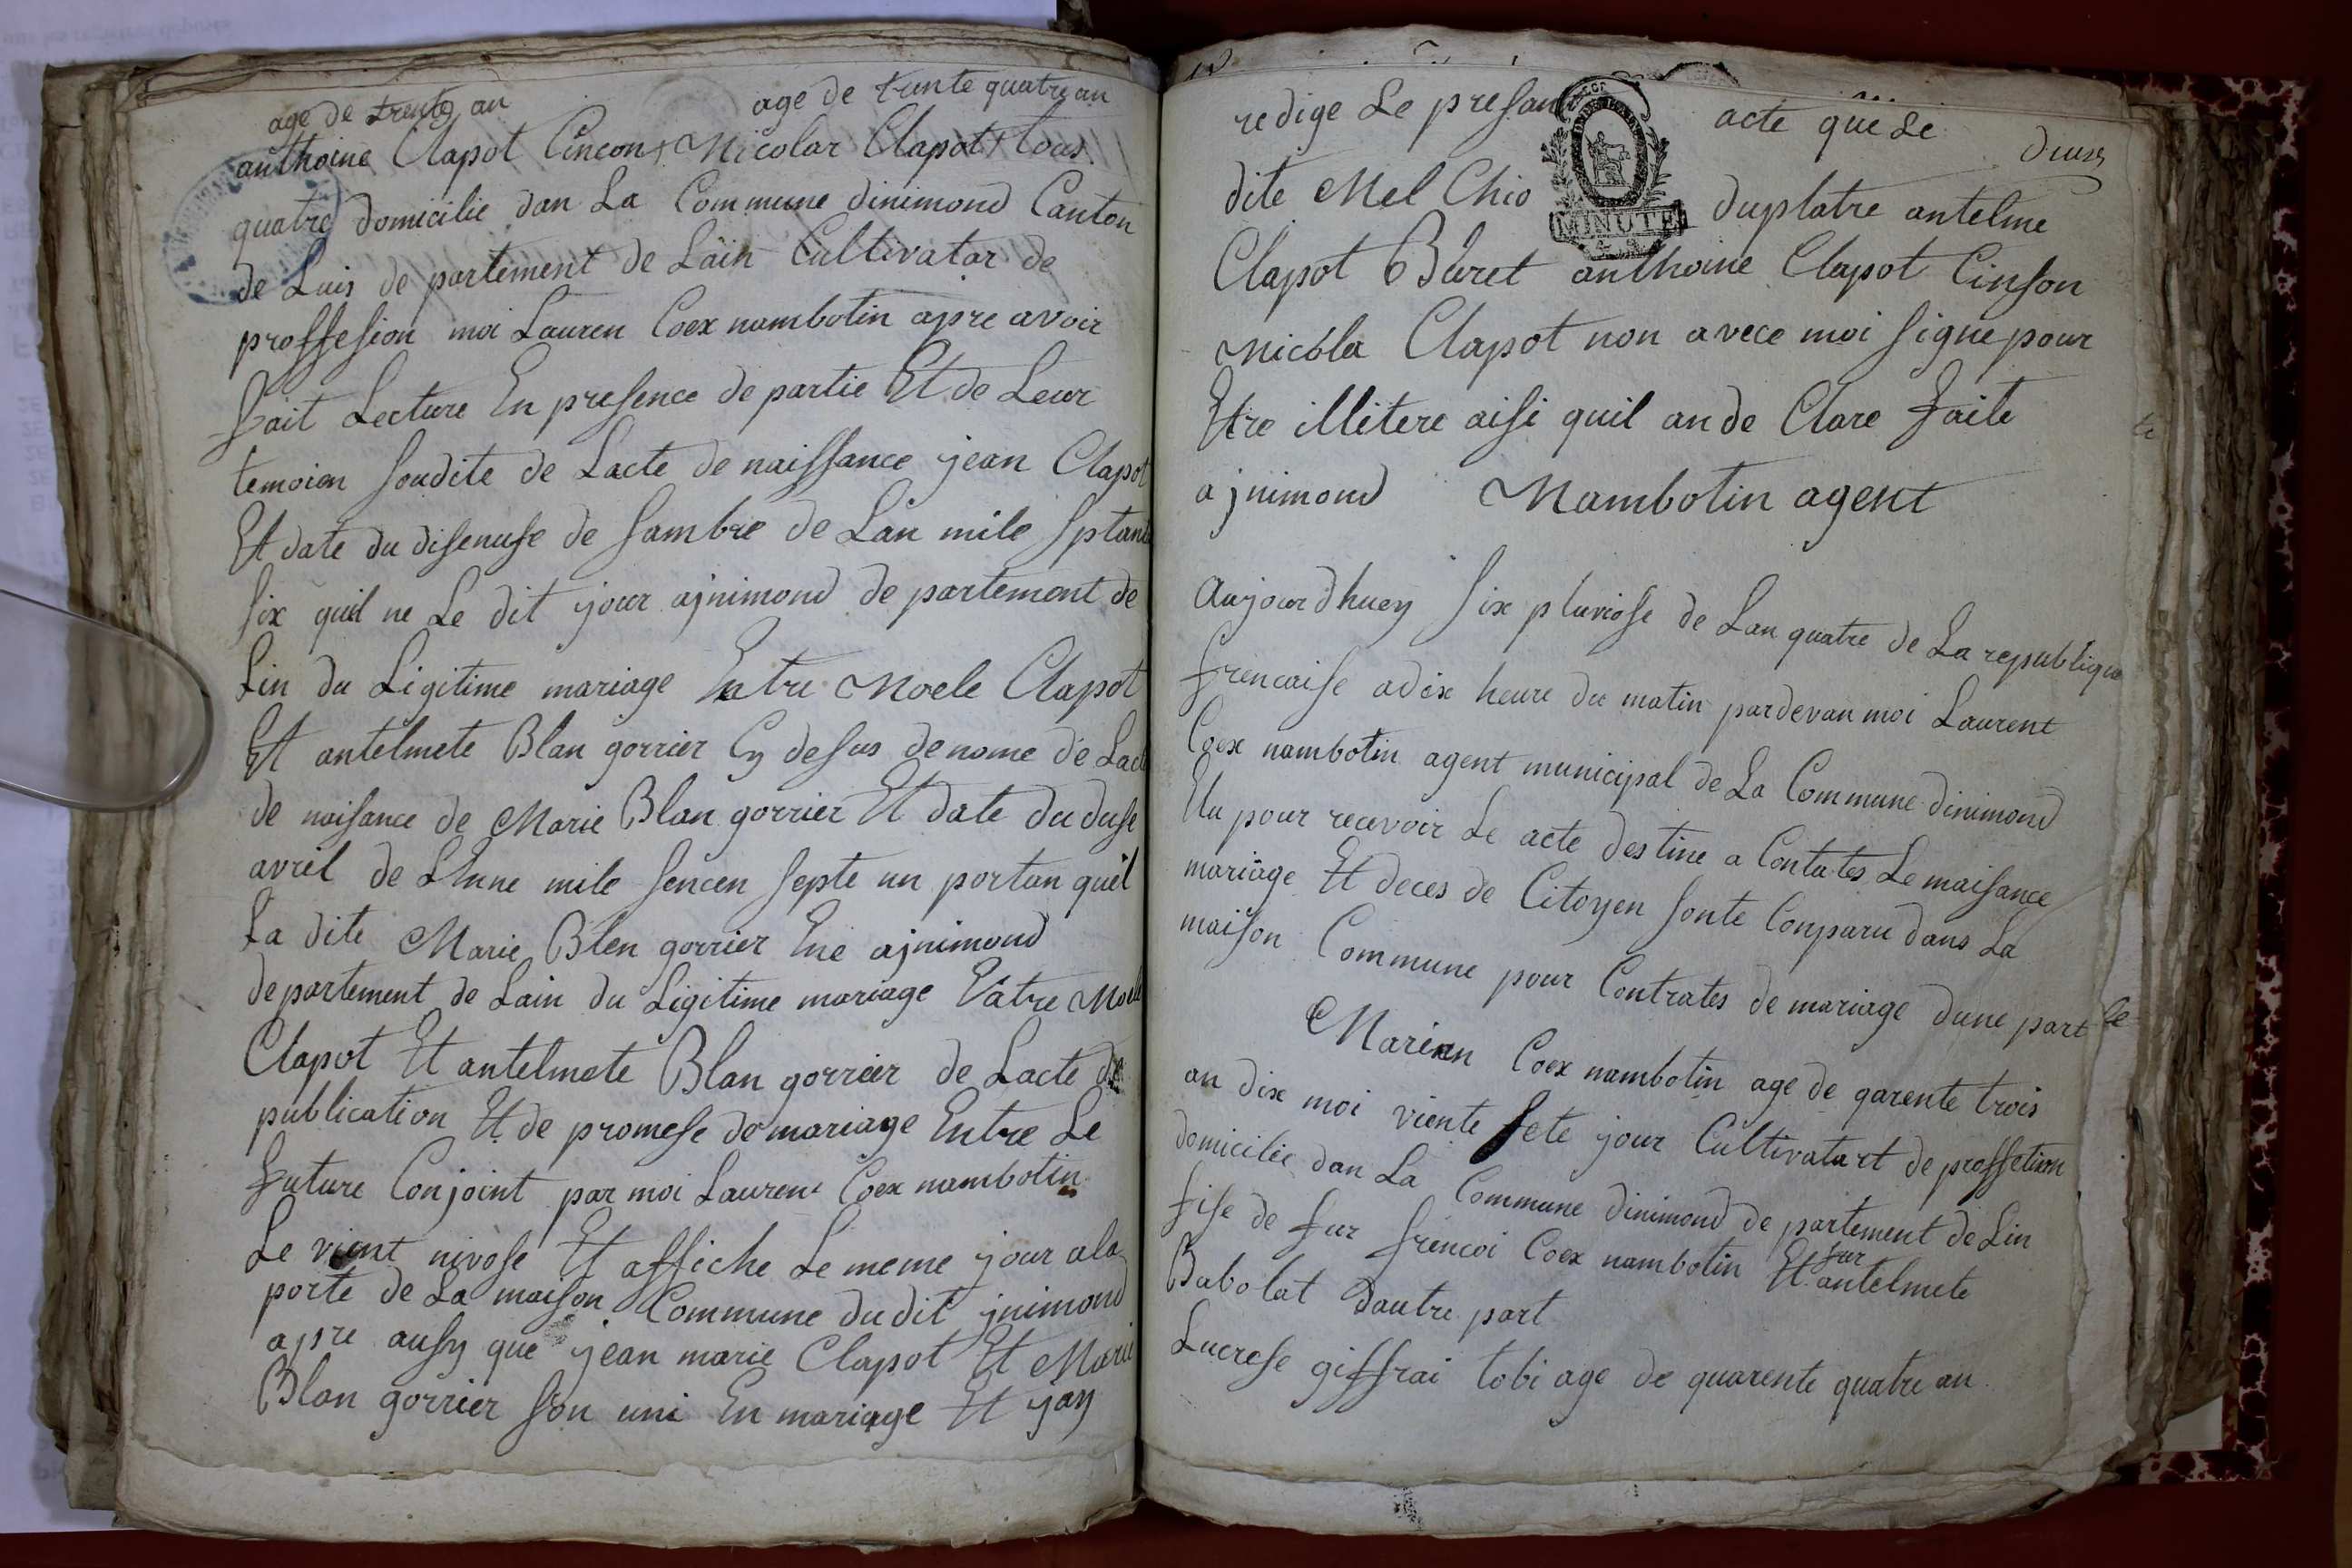 age de trente an age de trente quatre an
anthoine Clapot Cincon + Nicolar Clapot + tous
quatre domicilie dan La Commune dinimond Canton
de Luis de partement de Lain Cultivatar de
proffesion moi Lauren Coex nambotin apre avoir
fait Lecture En presence de partie Et de Leur
temoien soudite de Lacte de naissance jean Clapot
Et date du disenuse de sambre de Lan mile sptante
six quil ne Le dit jour ajnimond de partement de
Lin du Ligitime mariage Entre Noele Clapot
Et antelmete Blan gorrier Cy desus denome de Lacte
de naisance de Marie Blan gorrier Et date du duse
avril de Lanne mile sencen septe un portan quel
La dite Marie Blen gorrier Ene ajnimond
departement de Lain du Ligitime mariage Entre Noele
Clapot Et antelmete Blan gorrier de Lacte de
publication Et de promese de mariage Entre Le
future Conjoint par moi Laurent Coex nambotin
Le vient nivose Et affiche Le meme jour ala
porte de La maison Commune du dit jnimond
apre ausy que jean marie Clapot Et Marie
Blan gorrier son uni En mariage Et jay
redige Le presant acte que Le
dite Mel Chio duplatre antelme
Clapot Buret anthoine Clapot Cinson
Nicola Clapot non avece moi signe pour
Etre illitere aisi quil an de Clare faite
ajnimond Nambotin agent
MINUTE
Aujourdhuey six pluviose de Lan quatre de La republique
frencaise adix heure du matin pardevan moi Laurent
Coex nambotin agent municipal de La Commune dinimond
Elu pour recevoir Le acte destine a Contates Le naisance
mariage Et deces de Citoyen sonte Conparu dans La
maison Commune pour Contrates de mariage dune part
Marien Coex nambotin age de qarente trois
an dix moi viente sete jour Cultivatart de proffetion
domicilie dan La Commune dinimond de partement de Lin
fise de fur frencoi Coex nambotin Et fur antelmete
Babolat dautre part
Lucrese giffrai tobi age de quarente quatre an